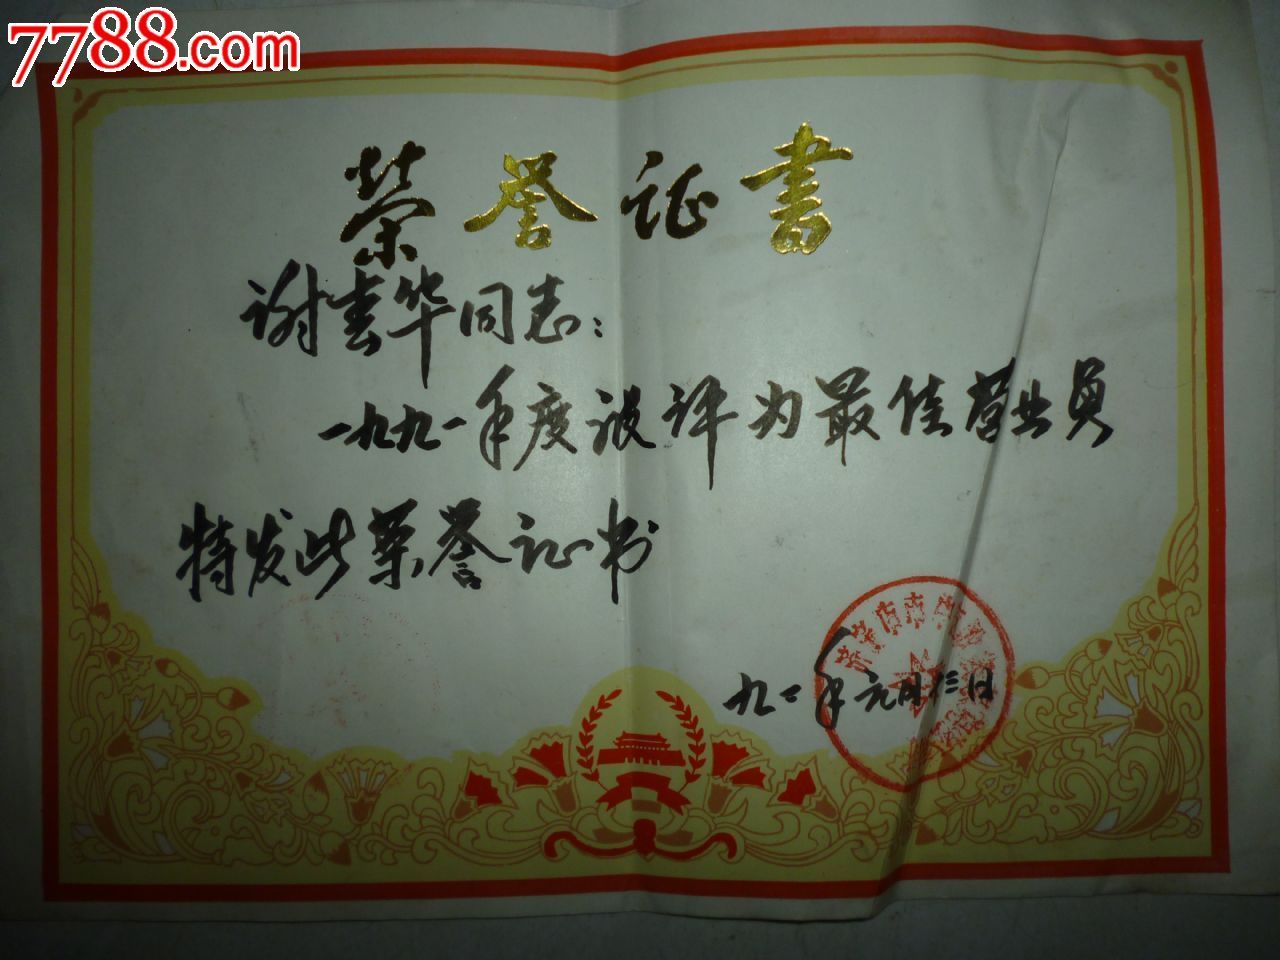 7788.com
荣誉证书
谢云华同志：
一九九一年度被评为最佳营业员
特发此荣誉证书
九二年元月廿三日